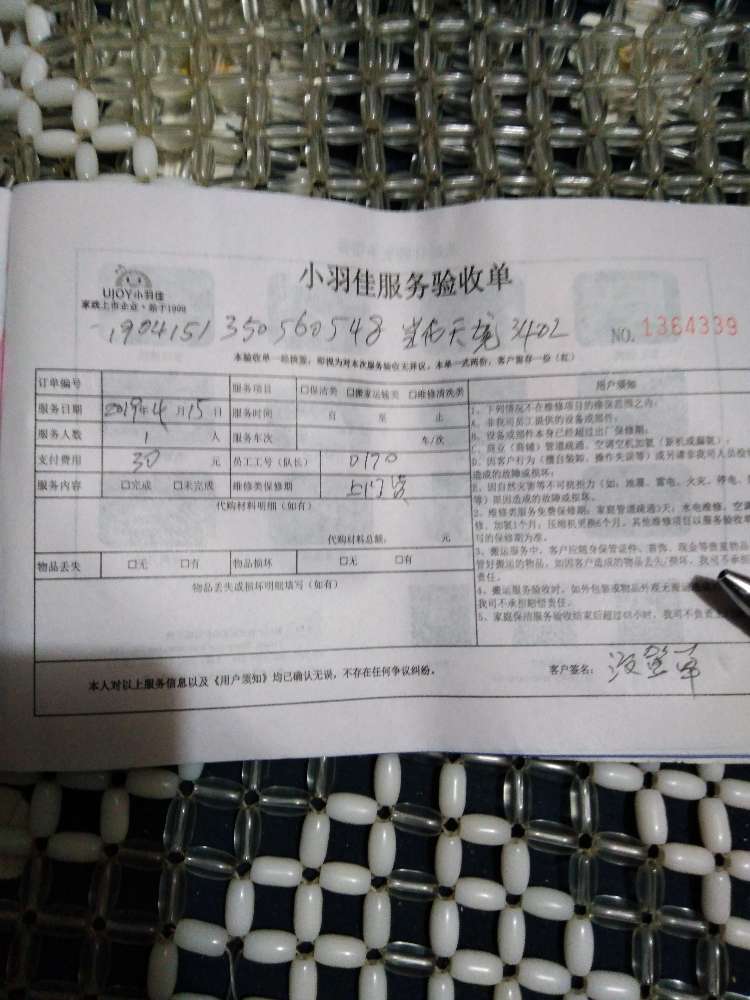 小羽佳服务验收单
UJOY小羽佳
家政上市企业·始于1998
1904151350560548 天 3402
NO. 1364339
本验收单一经换签，即视为对本次服务验收无异议。本单一式两份，客户留存一份（红）
订单编号 服务项目 □保洁类 □搬家运输类 □维修清洗类
服务日期 2019年4月15日 服务时间 自 至 止
服务人数 1 人 服务车次 车/次
支付费用 30 元 员工工号（队长） 0170
服务内容 □完成 □未完成 维修类保修期 上门
代购材料明细（如有）
代购材料总额： 元
物品丢失 □无 □有 物品损坏 □无 □有
物品丢失或损坏明细填写（如有）
用户须知
1、下列情况不在维修项目的维保范围之内：
A、非我司员工提供的设备或部件；
B、设备或部件本身已经超过出厂保修期；
C、商业（商铺）管道疏通、空调空机加氨（新机或漏氨）；
D、因客户行为（擅自装卸、操作失误等）或另请非我司人员检修
造成的故障或损坏；
E、因自然灾害等不可抗拒力（如：地震、雷电、火灾、停电、
等）原因造成的故障或损坏。
2、维修类服务免费保修期：家庭管道疏通3天；水电维修、空调
修、加氨1个月；压缩机更换6个月。其他维修项目以服务验收
写的保修期为准。
3、搬运服务中，客户应随身保管证件、首饰、现金等贵重物品
管好搬运的物品，如因客户造成的物品丢失/损坏，我司不承担
责任。
4、搬运服务验收时，如外包装或物品外观无搬运
我司不承担赔偿责任。
5、家庭保洁服务验收结束后超过48小时，我司不负责
本人对以上服务信息以及《用户须知》均已确认无误，不存在任何争议纠纷。
客户签名：